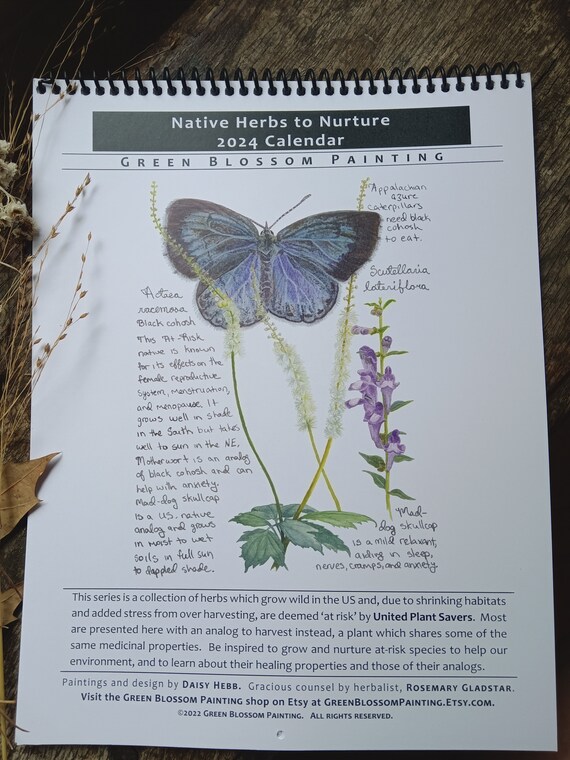 Native Herbs to Nurture
2024 Calendar
GREEN BLOSSOM PAINTING
Appalachan
azure
caterpillars
need black
cohosh
to eat.
Scutellaria
lateriflora
Actaea
racemosa
Black cohosh
This At-Risk
native is known
for its effects on the
female reproductive
system, menstruation,
and menopause. It
grows well in shade
in the South but takes
well to sun in the NE.
Motherwort is an analog
of black cohosh and can
help with anxiety.
Mad-dog skullcap
is a U.S. native
analog and grows
in moist to wet
soils in full sun
to dappled shade.
Mad-
dog skullcap
is a mild relaxant,
aiding in sleep,
nerves, cramps, and anxiety.
This series is a collection of herbs which grow wild in the US and, due to shrinking habitats
and added stress from over harvesting, are deemed ‘at risk’ by United Plant Savers. Most
are presented here with an analog to harvest instead, a plant which shares some of the
same medicinal properties. Be inspired to grow and nurture at-risk species to help our
environment, and to learn about their healing properties and those of their analogs.
Paintings and design by DAISY HEBB. Gracious counsel by herbalist, ROSEMARY GLADSTAR.
Visit the GREEN BLOSSOM PAINTING shop on Etsy at GREENBLOSSOMPAINTING.ETSY.COM.
©2022 GREEN BLOSSOM PAINTING. ALL RIGHTS RESERVED.